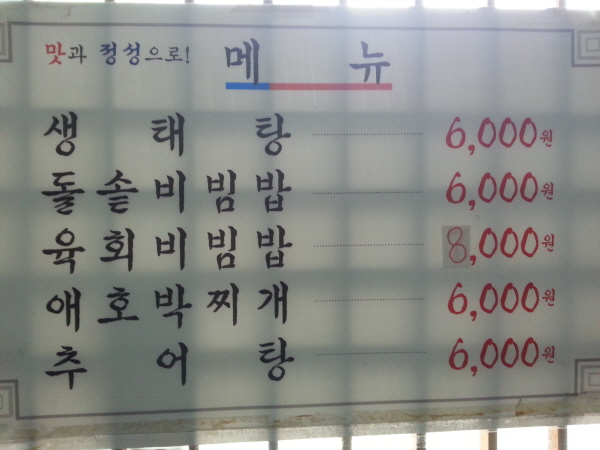 맛과 정성으로!
메뉴
생태탕 6,000원
돌솥비빔밥 6,000원
육회비빔밥 8,000원
애호박찌개 6,000원
추어탕 6,000원